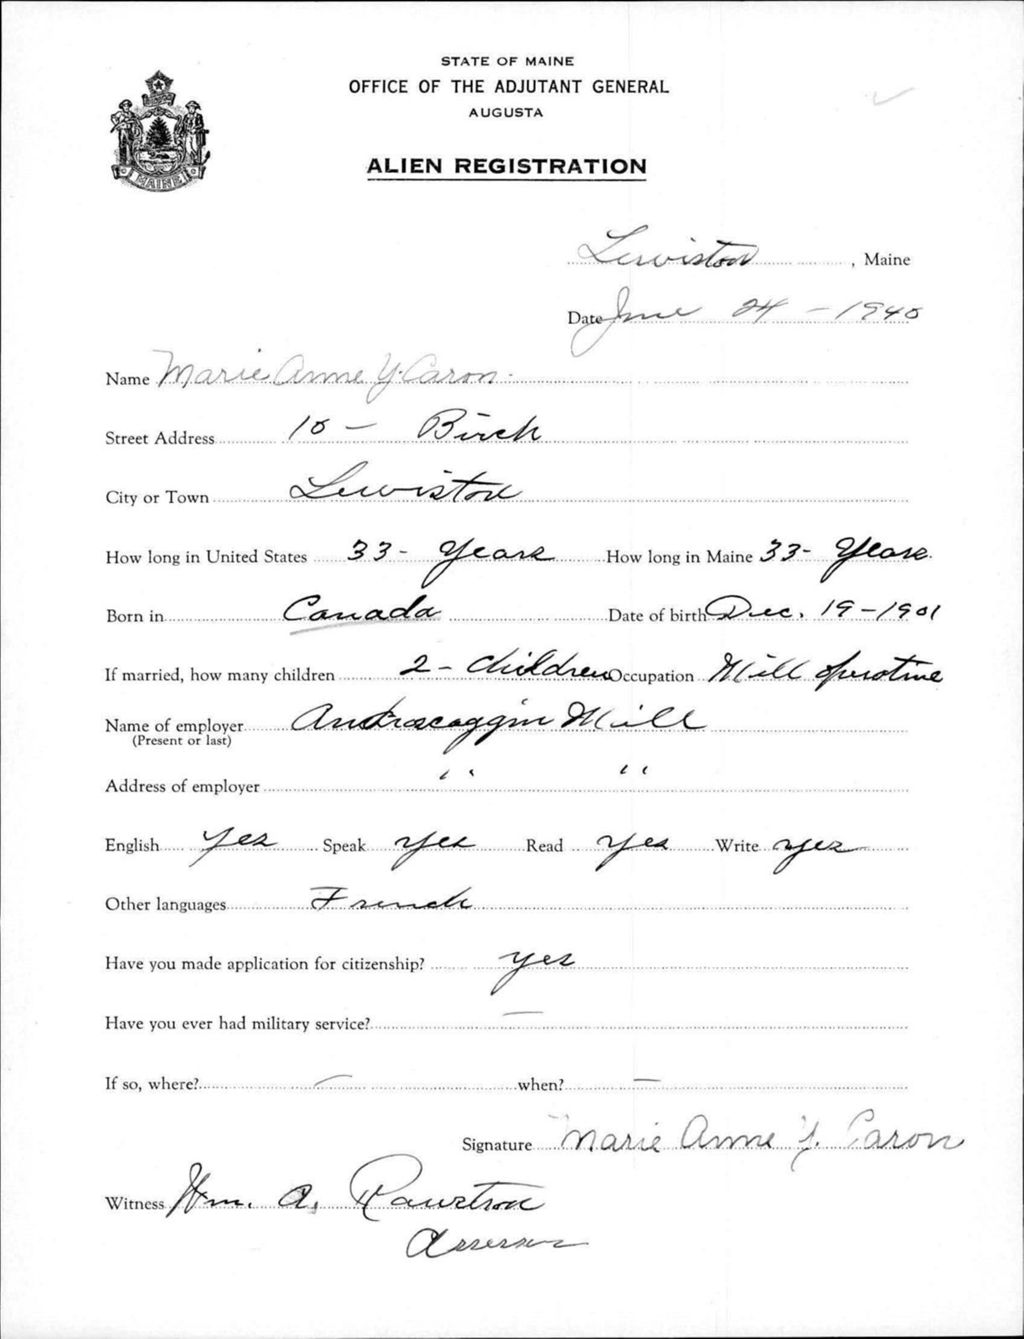 STATE OF MAINE
OFFICE OF THE ADJUTANT GENERAL
AUGUSTA
ALIEN REGISTRATION
MAINE
Lewiston, Maine
Date June 24 - 1940
Name Marie Anne Y. Caron
Street Address 10 - Birch
City or Town Lewiston
How long in United States 33 - Years How long in Maine 33 - Years
Born in Canada Date of birth Dec. 19 - 1901
If married, how many children 2 - children Occupation Mill operative
Name of employer Androscoggin Mill
(Present or last)
Address of employer " "
English yes Speak yes Read yes Write yes
Other languages French
Have you made application for citizenship? yes
Have you ever had military service? —
If so, where? — when? —
Signature Marie Anne Y. Caron
Witness Wm. A.
Assessor